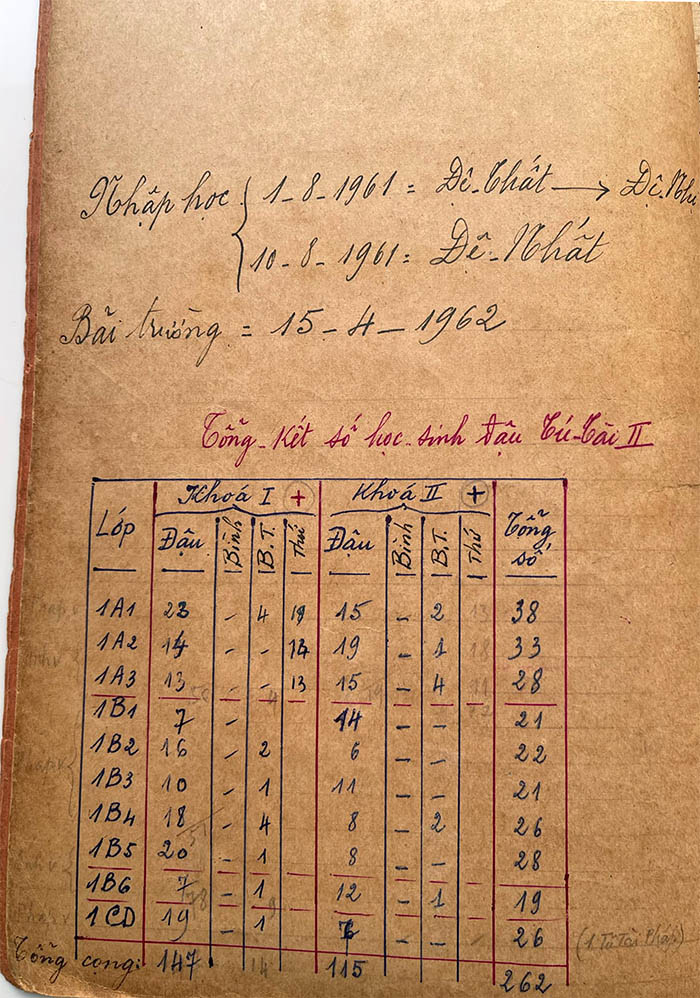 Nhập học { 1-8-1961 = Đệ-Thất → Đệ-Nhị
10-8-1961 = Đệ-Nhất
Bãi trường = 15-4-1962
Tổng-kết số học-sinh đậu Tú-Tài II
Lớp | Khoá I + | Khoá II + | Tổng số
Đậu | Bình | B.T. | Thứ | Đậu | Bình | B.T. | Thứ
1A1 23 - 4 19 15 - 2 13 38
1A2 14 - - 14 19 - 1 18 33
1A3 13 - - 13 15 - 4 11 28
1B1 7 - 14 - - 21
1B2 16 - 2 6 - - 22
1B3 10 - 1 11 - - 21
1B4 18 - 4 8 - 2 26
1B5 20 - 1 8 - - 28
1B6 7 - 1 12 - 1 19
1CD 19 - 1 7 - - 26 (1 Tú Tài Pháp)
Tổng cong: 147 14 115 262